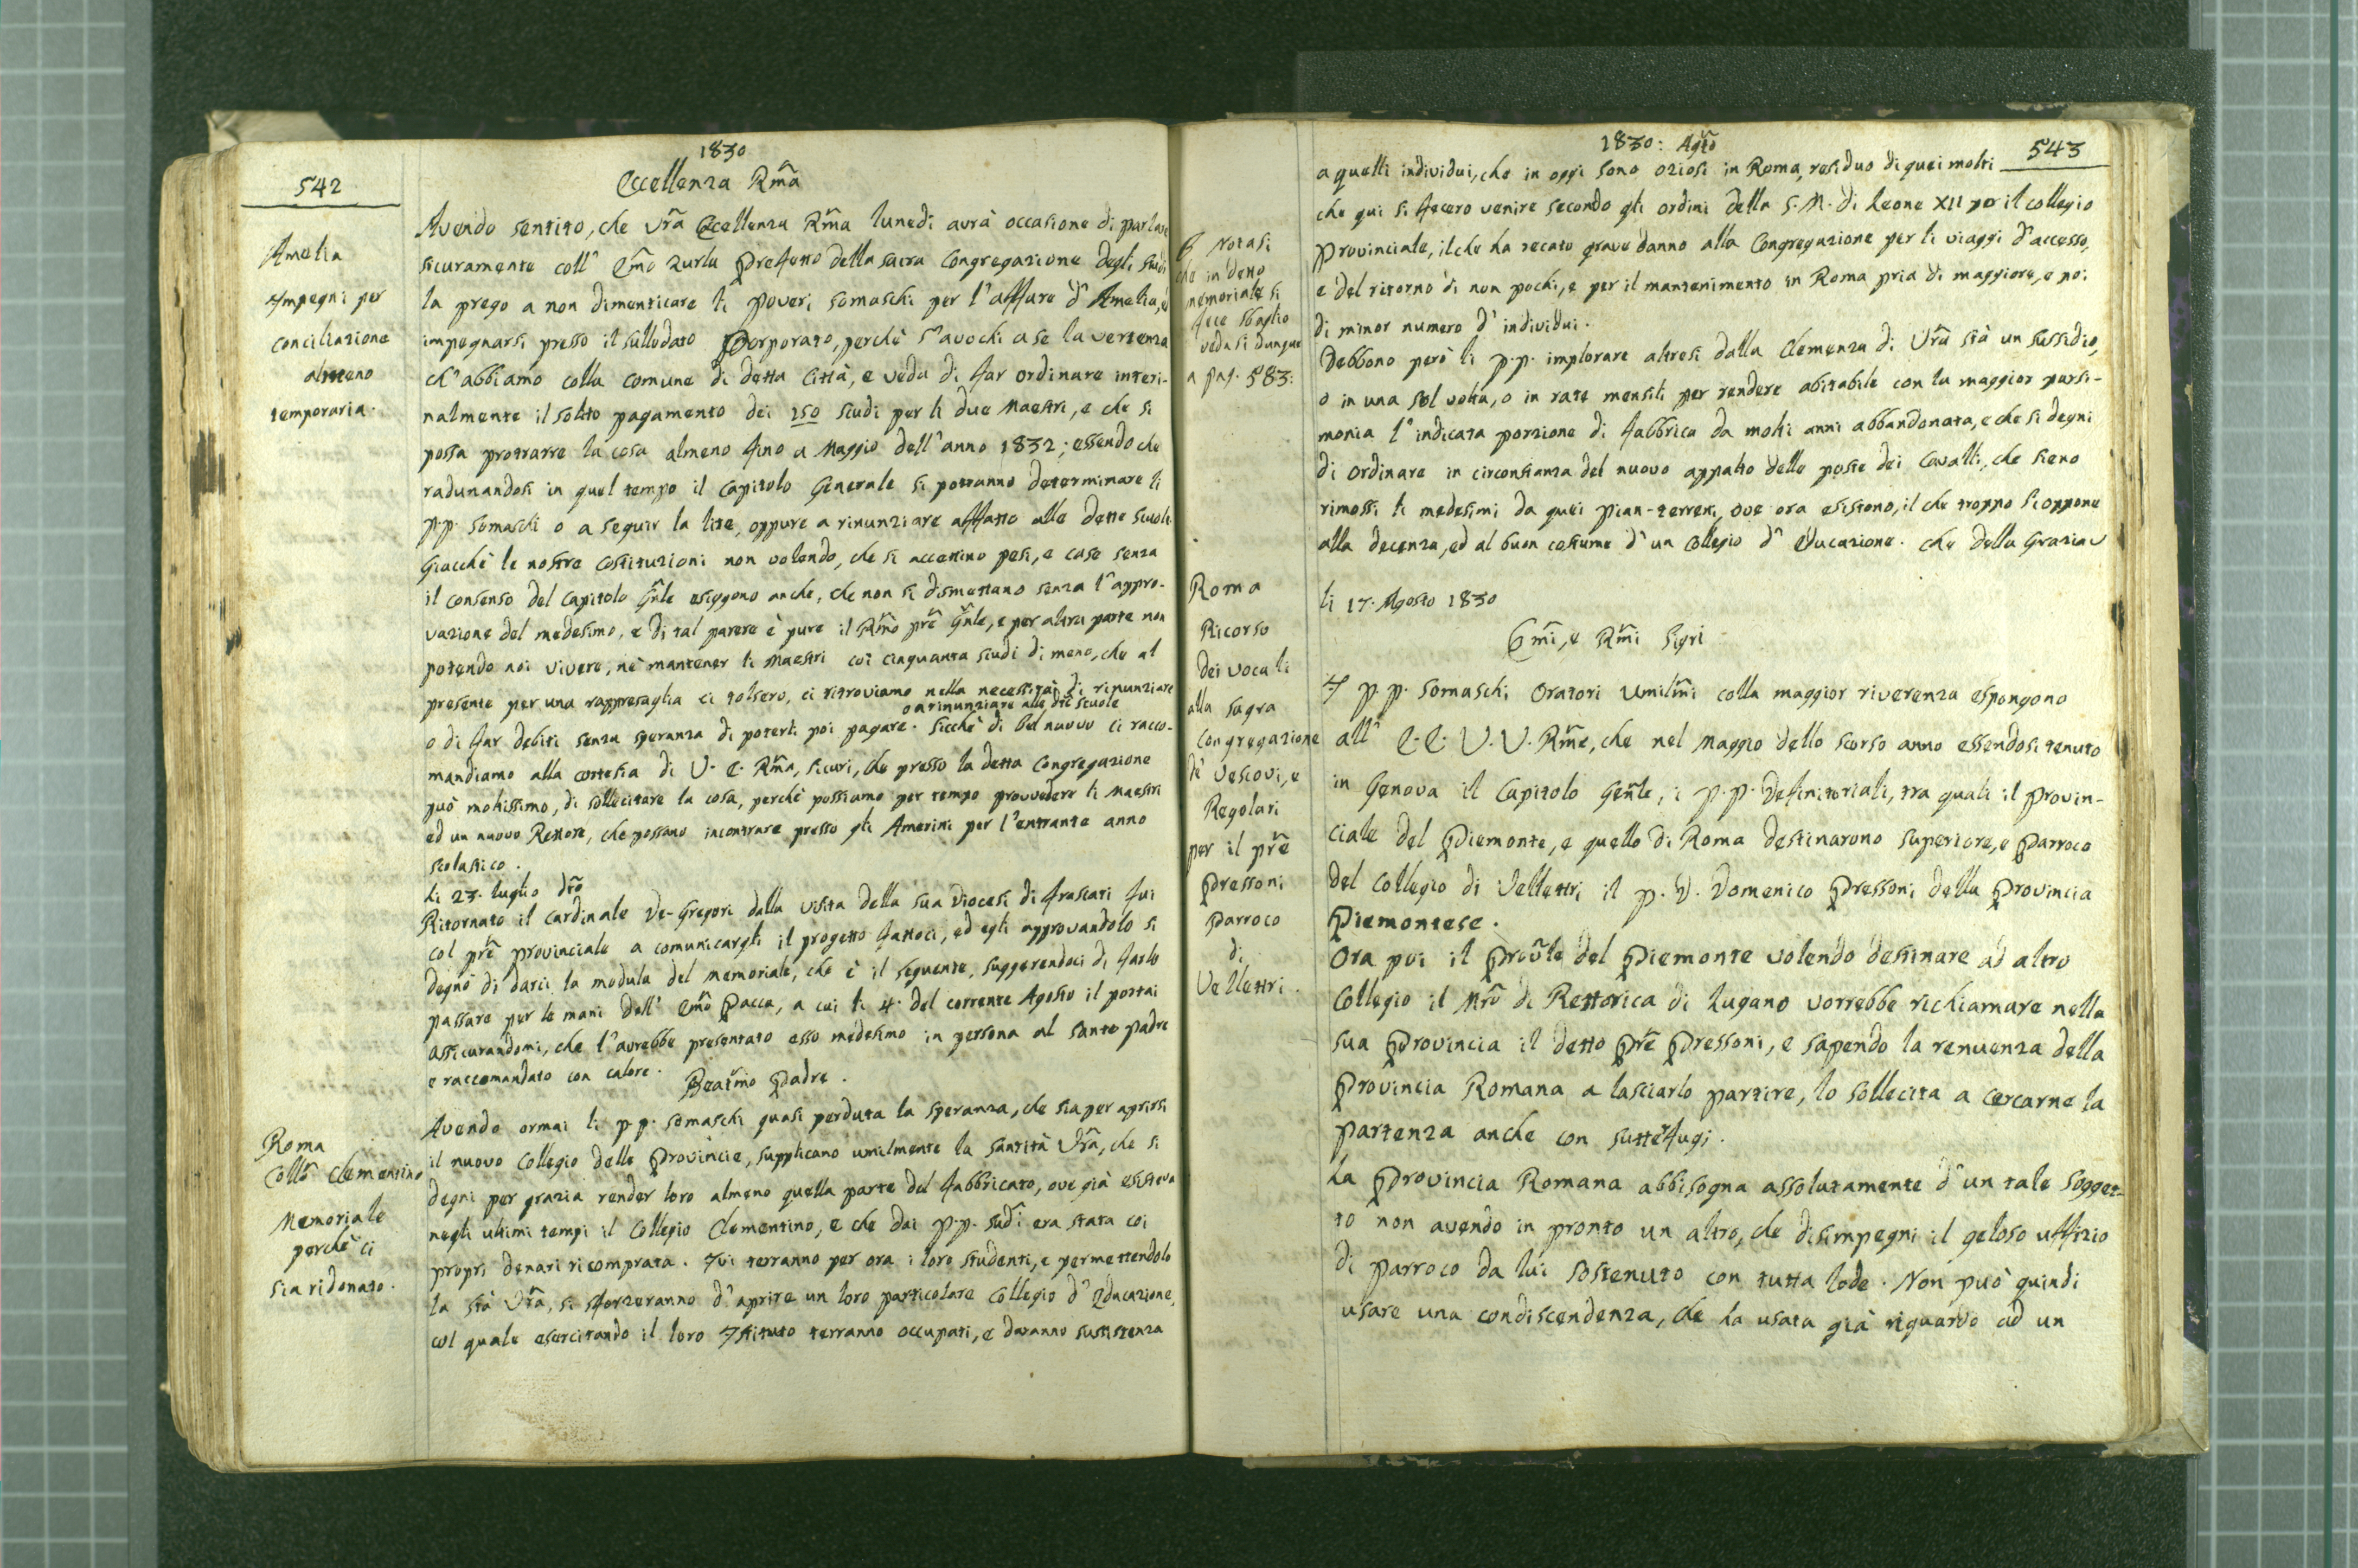 1830
542
Eccellenza Rma
Amelia
Impegni per
conciliazione
almeno
temporaria.
Avendo sentito, che Vra Eccellenza Rma lunedì avrà occasione di parlare
sicuramente coll' Emo Zurla Prefetto della sacra Congregazione degli studi
la prego a non dimenticare li poveri somaschi per l'affare d'Amelia, e
impegnarsi presso il sullodato Porporato, perchè s'avochi a se la vertenza
ch'abbiamo colla comune di detta Città, e veda di far ordinare interi-
nalmente il solito pagamento dei 250 scudi per li due Maestri, e che si
possa protrarre la cosa almeno fino a Maggio dell'anno 1832; essendo che
radunandosi in quel tempo il Capitolo Generale si potranno determinare li
p.p. somaschi o a seguir la lite, oppure a rinunziare affatto alle dette scuole
Giacchè le nostre costituzioni non volendo, che si accettino pesi, e case senza
il consenso del Capitolo Gnle esiggono anche, che non si dismettano senza l'appro-
vazione del medesimo, e di tal parere è pure il Rmo pre Gnle, e per altra parte non
potendo noi vivere, nè mantener li Maestri coi cinquanta scudi di meno, che al
presente per una rappresaglia ci tolsero, ci ritroviamo nella necessità di rinunziare
o a rinunziare alle dte scuole
o di far debiti senza speranza di poterli poi pagare. Sicchè di bel nuovo ci racco-
mandiamo alla cortesia di V. E. Rma, sicuri, che presso la detta Congregazione
può moltissimo, di sollecitare la cosa, perchè possiamo per tempo provvedere li Maestri
ed un nuovo Rettore, che possano incontrare presso gli Amerini per l'entrante anno
scolastico.
li 23. luglio dto
Ritornato il Cardinale De-Gregori dalla visita della sua Diocesi di Frascati fui
col pre provinciale a comunicargli il progetto fattoci, ed egli approvandolo si
degnò di darci la modula del memoriale, che è il seguente, suggerendoci di farlo
passare per le mani dell' Emo Pacca, a cui li 4. del corrente Agosto il portai
assicurandomi, che l'avrebbe presentato esso medesimo in persona al santo padre
e raccomandato con calore.
Beatmo Padre.
Roma
Collo Clementino
Memoriale
perchè ci
sia ridonato.
Avendo ormai li p.p. somaschi quasi perduta la speranza, che sia per aprirsi
il nuovo Collegio delle Provincie, supplicano umilmente la santità Vra, che si
degni per grazia render loro almeno quella parte del fabbricato, ove già esisteva
negli ultimi tempi il Collegio Clementino, e che dai p.p. sudi era stata coi
propri denari ricomprata. Ivi terranno per ora i loro studenti, e permettendolo
la stà Vra, si sforzeranno d'aprire un loro particolare Collegio d'Educazione,
col quale esercitando il loro Istituto terranno occupati, e daranno sussistenza
1830: Agto
543
Notasi
che in detto
memoriale si
fece sbaglio
vedasi dunque
a pag. 583:
a quelli individui, che in oggi sono oziosi in Roma, residuo di quei molti
che qui si fecero venire secondo gli ordini della S. M. di Leone XII per il collegio
Provinciale, il che ha recato grave danno alla Congregazione per li viaggi d'accesso,
e del ritorno di non pochi, e per il mantenimento in Roma pria di maggiore, e poi
di minor numero d'individui.
Debbono però li p.p. implorare altresì dalla Clemenza di Vra stà un sussidio,
o in una sol volta, o in rate mensili per rendere abitabile con la maggior parsi-
monia l'indicata porzione di fabbrica da molti anni abbandonata, e che si degni
di ordinare in circonstanza del nuovo appalto delle poste dei Cavalli, che sieno
rimossi li medesimi da quei pian-terreni, ove ora esistono, il che troppo si oppone
alla decenza, ed al buon costume d'un Collegio d'Educazione. Che della Grazia
li 17. Agosto 1830
Emi, e Rmi Sigri
Roma
Ricorso
dei vocali
alla sagra
Congregazione
de' Vescovi, e
Regolari
per il pre
Pressoni
Parroco
di
Velletri.
I p.p. somaschi Oratori Umilmi colla maggior riverenza espongono
all' E.E. V.V. Rme, che nel Maggio dello scorso anno essendosi tenuto
in Genova il Capitolo Genle, i p.p. Definitoriali, tra quali il provin-
ciale del Piemonte, e quello di Roma destinarono superiore, e parroco
del Collegio di Velletri il p. D. Domenico Pressoni della Provincia
Piemontese.
Ora poi il Prole del Piemonte volendo destinare ad altro
Collegio il Mro di Rettorica di Lugano vorrebbe richiamare nella
sua Provincia il detto Pre Pressoni, e sapendo la renuenza della
Provincia Romana a lasciarlo partire, lo sollecita a cercarne la
partenza anche con sutterfugi.
La Provincia Romana abbisogna assolutamente d'un tale sogget-
to non avendo in pronto un altro, che disimpegni il geloso uffizio
di parroco da lui sostenuto con tutta lode. Non può quindi
usare una condiscendenza, che ha usata già riguardo ad un